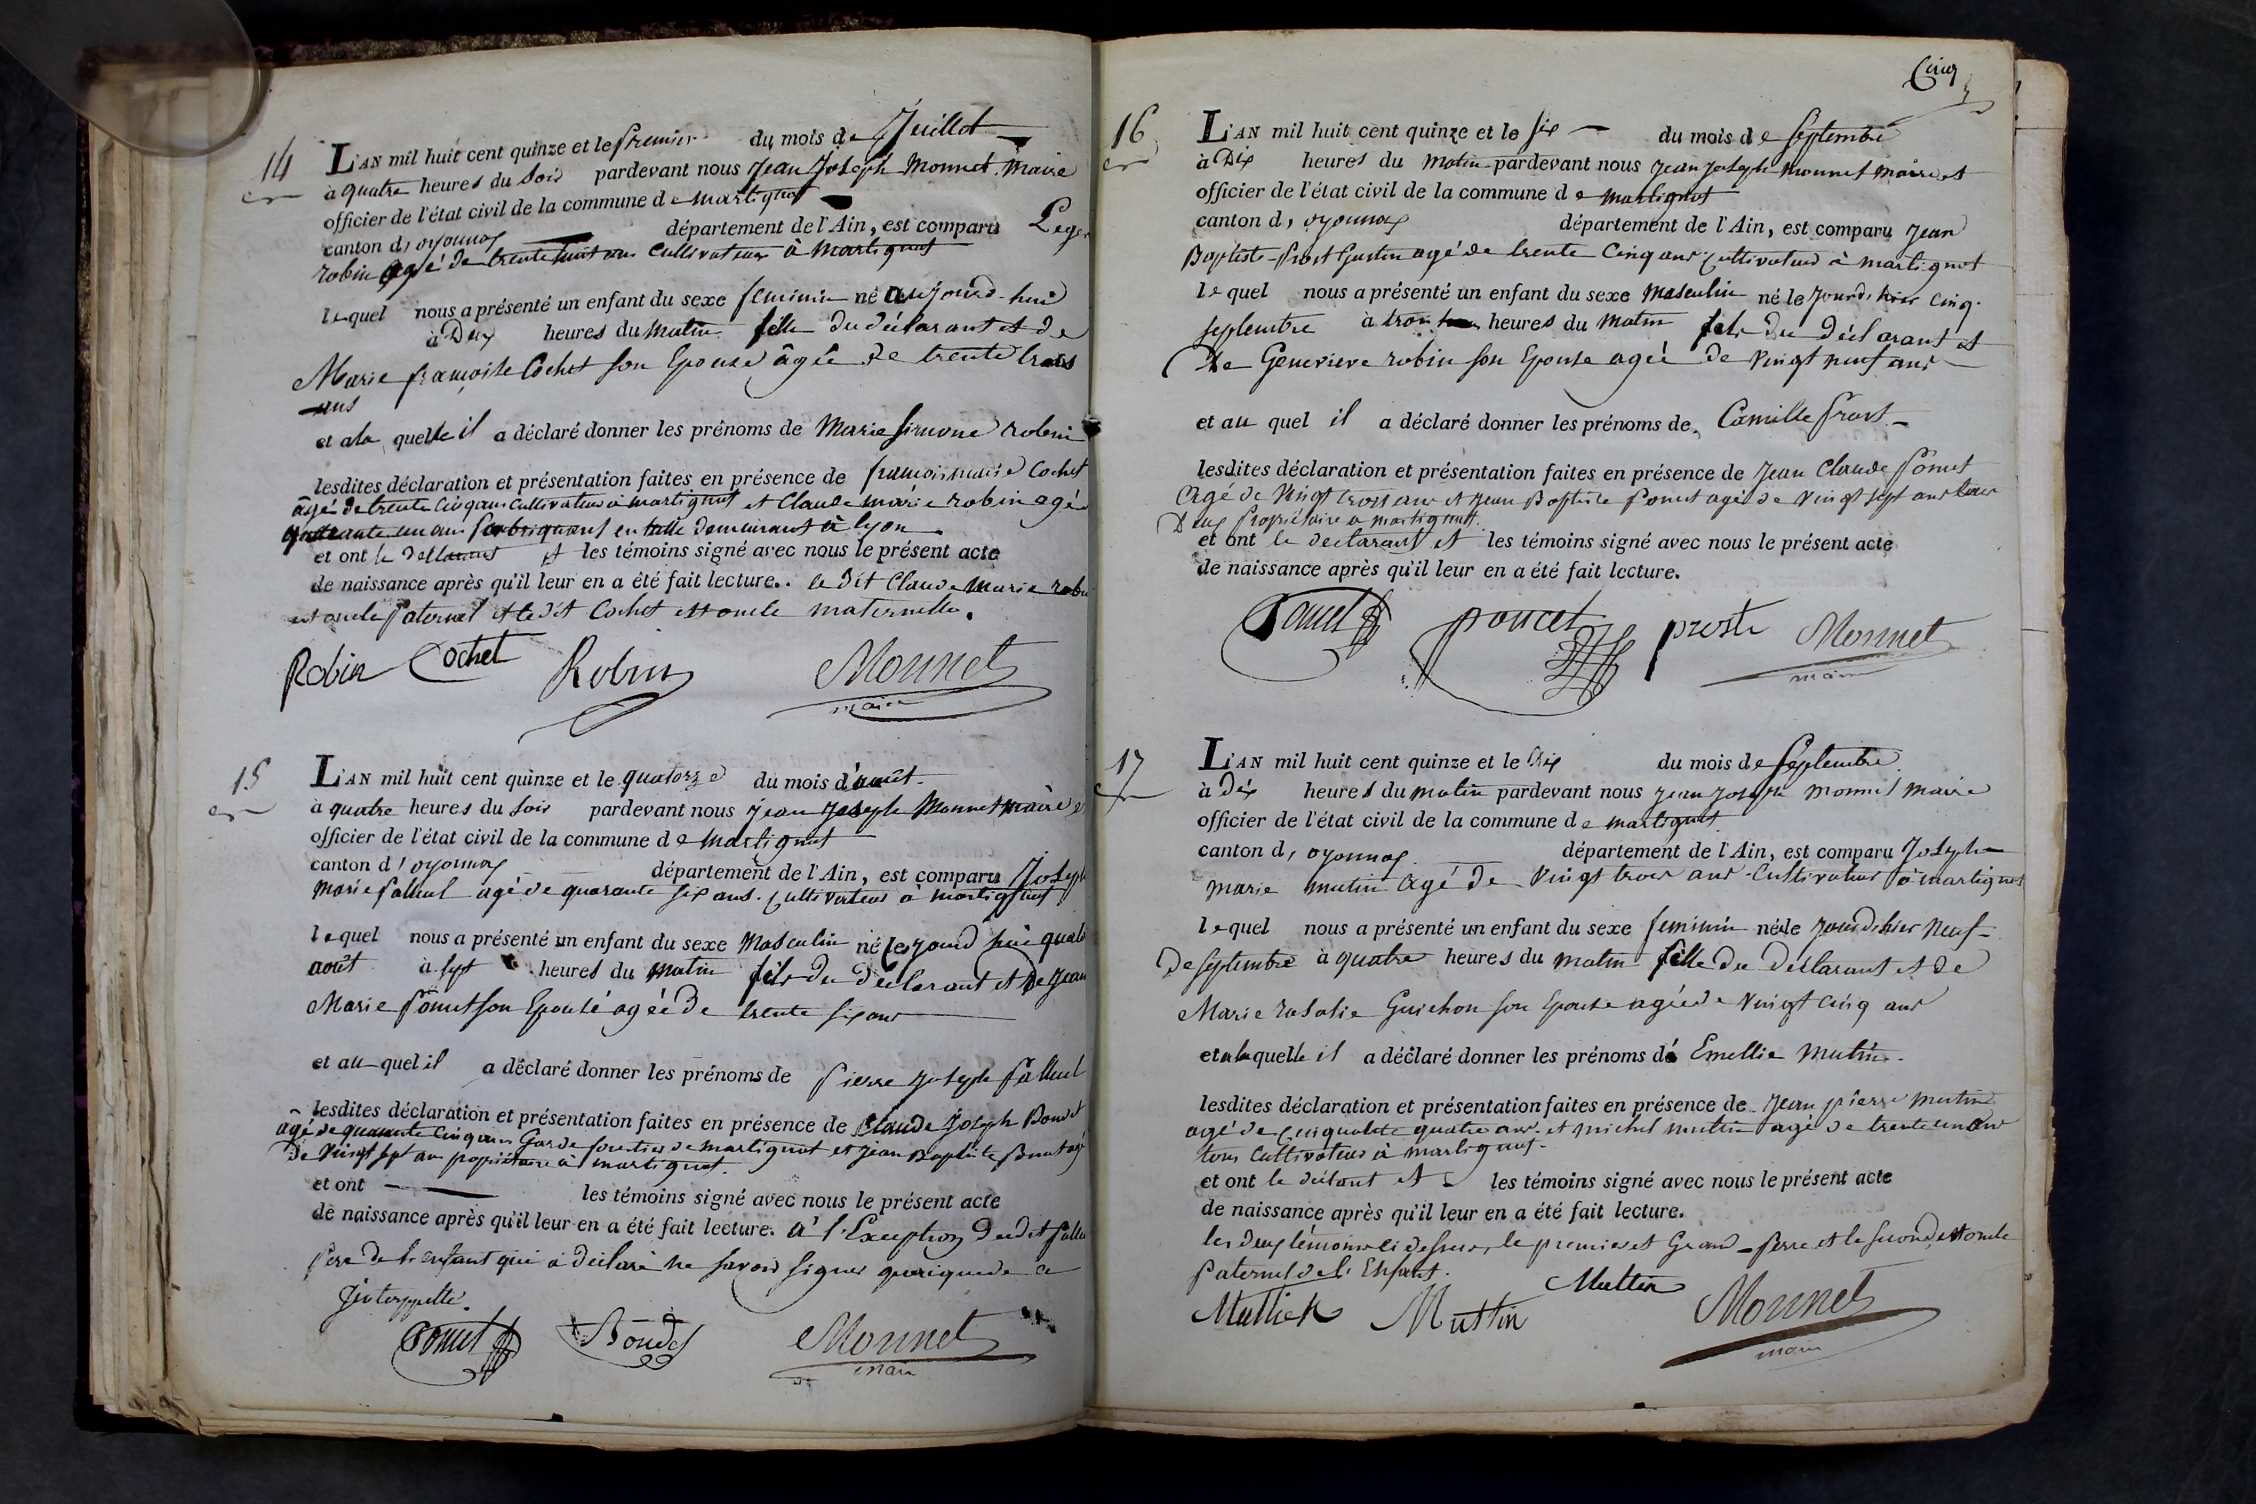 14
L'AN mil huit cent quinze et le premier du mois de Juillet
à quatre heures du soir pardevant nous Jean Joseph Monnet maire
officier de l'état civil de la commune de martignat
canton d, oyonnax département de l'Ain, est comparu Leger
robin agé de trente huit ans cultivateur à Martignat
lequel nous a présenté un enfant du sexe feminin né aujourd-hui
à Dix heures du matin fille du déclarant et de
Marie françoise Cochet son Epouse âgée de trente trois
ans
et ala quelle il a déclaré donner les prénoms de Marie simone robin
lesdites déclaration et présentation faites en présence de francois marie Cochet
âgé de trente cinq ans cultivateur à martignat et Claude marie robin agé
quarante un ans fabriquant en tulle demeurant à lyon
et ont le dellarant et les témoins signé avec nous le présent acte
de naissance après qu'il leur en a été fait lecture. le dit Claude Marie robin
est oncle paternel et le dit Cochet est oncle maternelle.
Robin Cochet Robin Monnet
maire
15
L'AN mil huit cent quinze et le quatorze du mois d'août
à quatre heures du soir pardevant nous jean joseph Monnet maire et
officier de l'état civil de la commune de martignat
canton d'oyonnax département de l'Ain, est comparu Joseph
marie agé de quarante six ans cultivateur à martignat
lequel nous a présenté un enfant du sexe Masculin né le jourd hui
août à sept heures du matin fils du déclarant et De jean
Marie ponset son Epouse agée de trente six ans
et au quel il a déclaré donner les prénoms de pierre joseph
lesdites déclaration et présentation faites en présence de Claude Joseph
âgé de quarante cinq ans Garde forestier de martignat et jean Baptiste agé
de vingt sept ans propriétaire à martignat.
et ont les témoins signé avec nous le présent acte
de naissance après qu'il leur en a été fait lecture. à l'Exception dudit
pere de l'enfant qui a déclaré ne savoir signer quoique de ce
Interppellé.
Monnet
maire
Cinq
16
L'AN mil huit cent quinze et le six du mois de septembre
à Dix heures du matin pardevant nous jean joseph monnet maire et
officier de l'état civil de la commune de martignat
canton d, oyonnax département de l'Ain, est comparu jean
Baptiste prost agé de trente cinq ans cultivateur à martignat
lequel nous a présenté un enfant du sexe Masculin né le jourd, hier cinq
septembre à trois heures du matin fils du déclarant et
De Genevieve robin son Epouse agée de vingt neuf ans
et au quel il a déclaré donner les prénoms de Camille prost
lesdites déclaration et présentation faites en présence de jean Claude ponset
agé de vingt trois ans et jean Baptiste ponset agé de vingt sept ans tous
Deux propriétaire a martignat.
et ont le declarant et les témoins signé avec nous le présent acte
de naissance après qu'il leur en a été fait lecture.
poncet proste Monnet
maire
17
L'AN mil huit cent quinze et le Dix du mois de septembre
à Dix heures du matin pardevant nous jean joseph monnet maire
officier de l'état civil de la commune de martignat
canton d, oyonnax département de l'Ain, est comparu Joseph
marie mutin agé de vingt trois ans cultivateur à martignat
lequel nous a présenté un enfant du sexe feminin né le jourd, hier neuf
De septembre à quatre heures du matin fille du déclarant et de
Marie rosalie Guichon son Epouse agée de vingt cinq ans
et a laquelle il a déclaré donner les prénoms de Emellie mutin
lesdites déclaration et présentation faites en présence de jean pierre mutin
agé de cinquante quatre ans et michel mutin agé de trente un ans
tous cultivateur à martignat.
et ont le déclant et les témoins signé avec nous le présent acte
de naissance après qu'il leur en a été fait lecture.
les deux témoins ci dessus, le premier est Grand-perre et le second est oncle
paternel de l'Enfant.
Muttin Muttin Monnet
maire